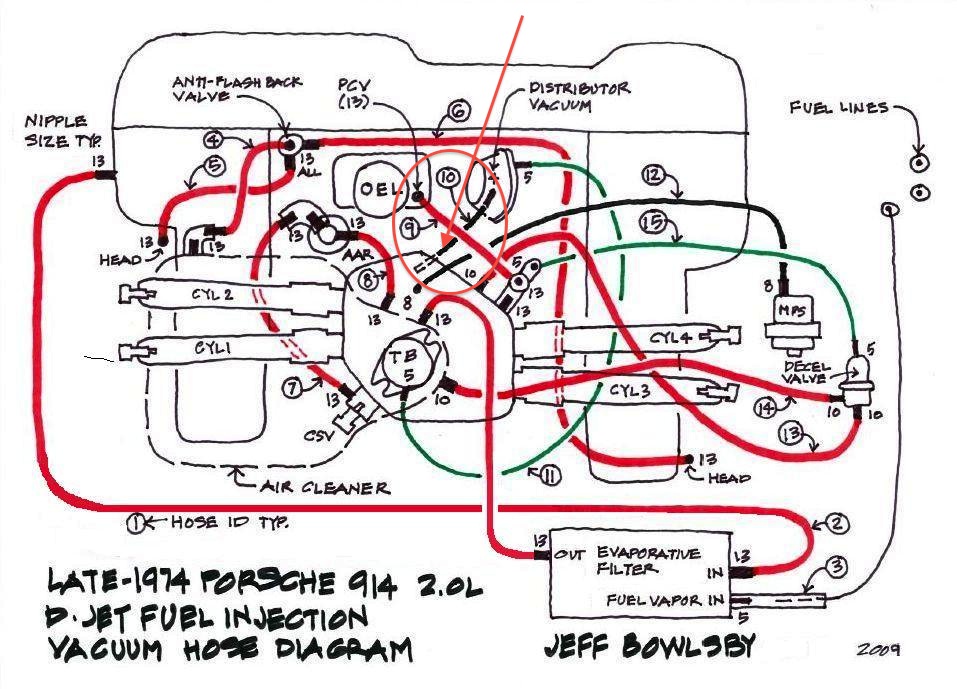 ANTI-FLASHBACK
VALVE
PCV
(13)
6
DISTRIBUTOR
VACUUM
FUEL LINES
NIPPLE
SIZE TYP.
13
4
5
13
ALL
OEL
10
5
12
9
15
13
HEAD
13
13
13
AAR
8
5
10
13
8
8
MPS
CYL 2
13
13
CYL 4
CYL1
TB
5
5
DECEL
VALVE
7
13
10
CYL3
10
10
14
CSV
13
13
HEAD
11
AIR CLEANER
1
HOSE ID TYP.
2
13
OUT
EVAPORATIVE
FILTER
13
IN
3
FUEL VAPOR IN
5
LATE-1974 PORSCHE 914 2.0L
D-JET FUEL INJECTION
VACUUM HOSE DIAGRAM
JEFF BOWLSBY
2009